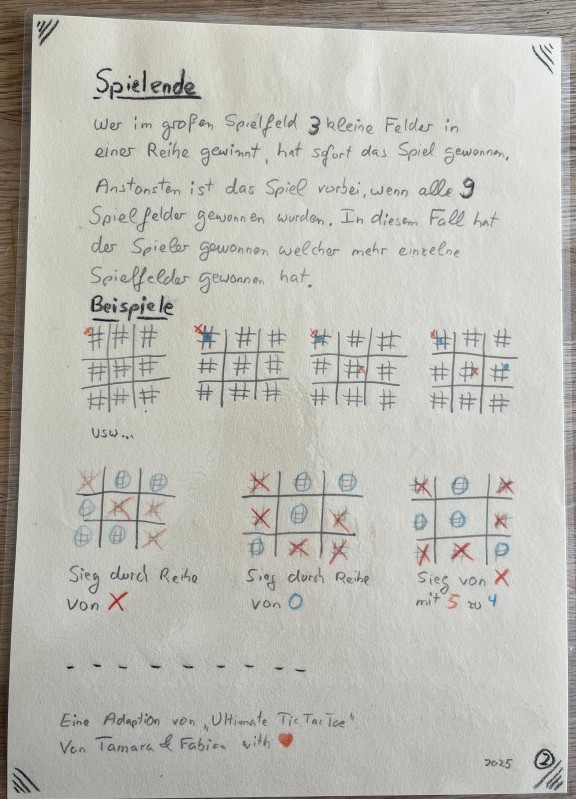 Spielende
Wer im großen Spielfeld 3 kleine Felder in
einer Reihe gewinnt, hat sofort das Spiel gewonnen.
Anstonsten ist das Spiel vorbei, wenn alle 9
Spielfelder gewonnen wurden. In diesem Fall hat
der Spieler gewonnen welcher mehr einzelne
Spielfelder gewonnen hat.
Beispiele
usw...
Sieg durch Reihe
von X
Sieg durch Reihe
von O
Sieg von X
mit 5 zu 4
Eine Adaption von „Ultimate Tic Tac Toe"
Von Tamara & Fabian with ❤
2025 2